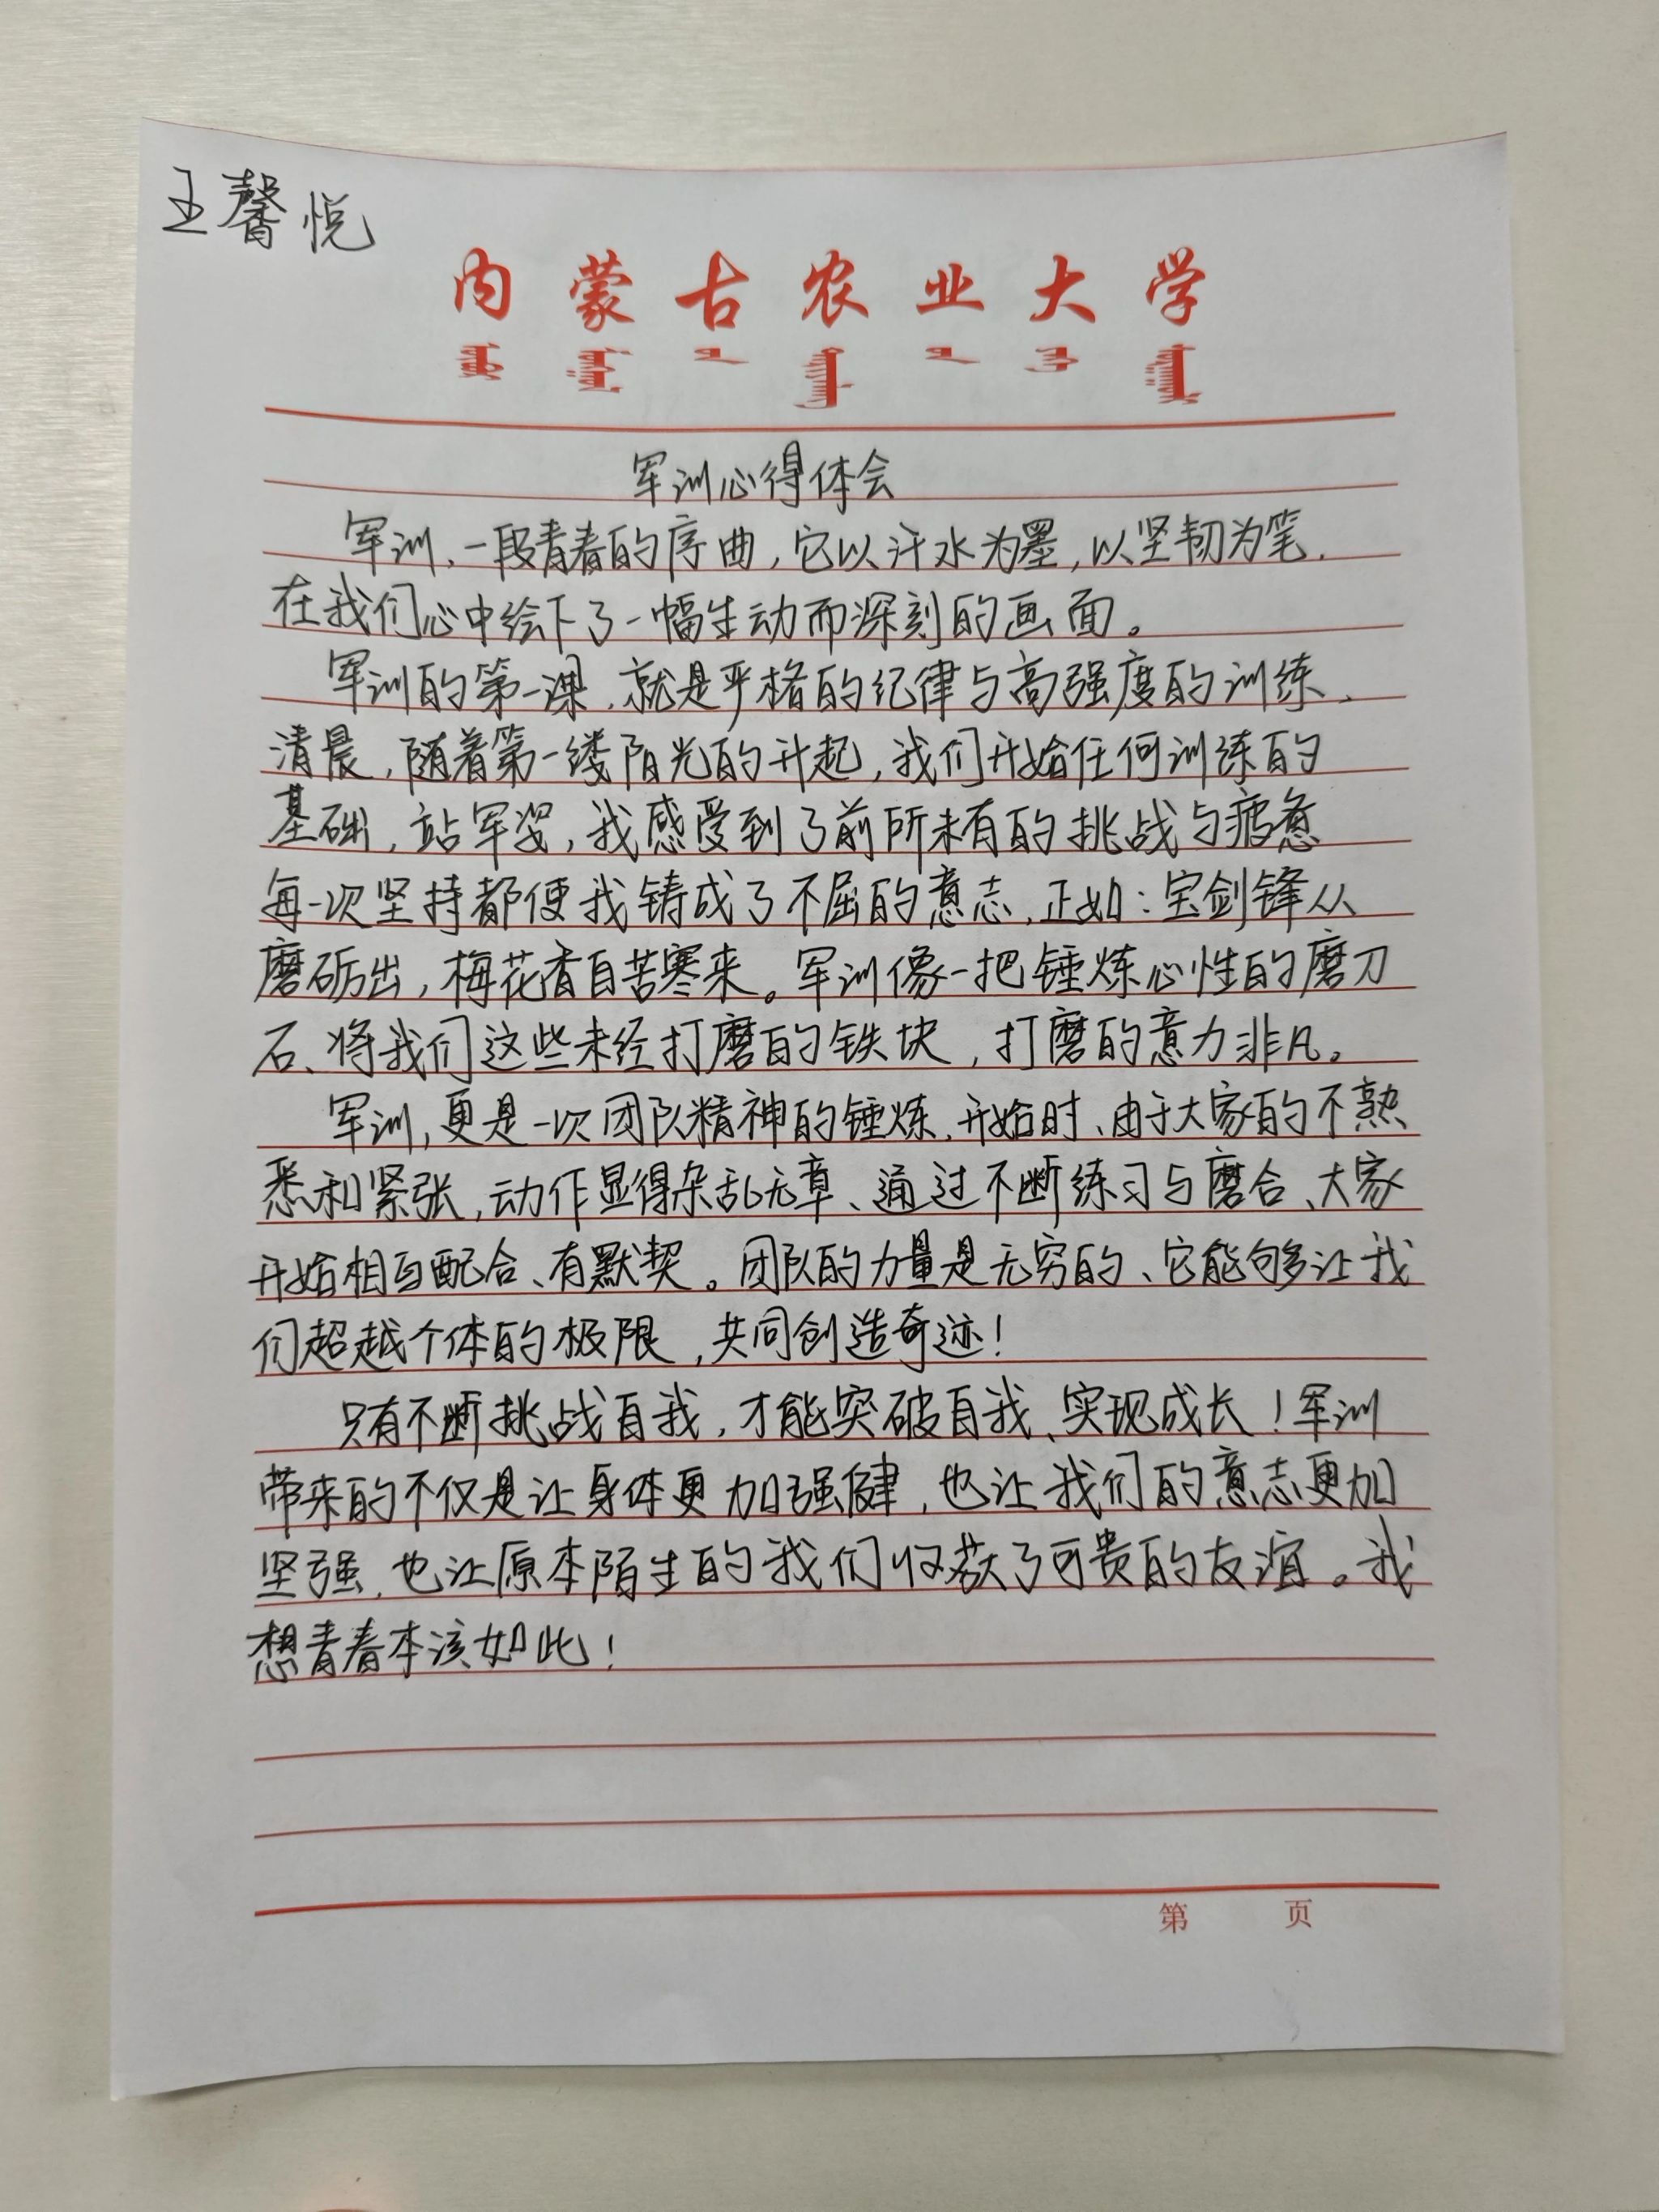 王馨悦
内蒙古农业大学
军训心得体会
军训,一段青春的序曲,它以汗水为墨,以坚韧为笔,
在我们心中绘下了一幅生动而深刻的画面。
军训的第一课,就是严格的纪律与高强度的训练、
清晨,随着第一缕阳光的升起,我们开始任何训练的
基础,站军姿,我感受到了前所未有的挑战与疲惫
每一次坚持都使我铸成了不屈的意志,正如:宝剑锋从
磨砺出,梅花香自苦寒来。军训像一把锤炼心性的磨刀
石、将我们这些未经打磨的铁块,打磨的意力非凡。
军训,更是一次团队精神的锤炼,开始时、由于大家的不熟
悉和紧张,动作显得杂乱无章、通过不断练习与磨合、大家
开始相互配合、有默契。团队的力量是无穷的、它能够让我
们超越个体的极限,共同创造奇迹!
只有不断挑战自我,才能突破自我、实现成长!军训
带来的不仅是让身体更加强健,也让我们的意志更加
坚强,也让原本陌生的我们收获了可贵的友谊。我
想青春本该如此!
第 页